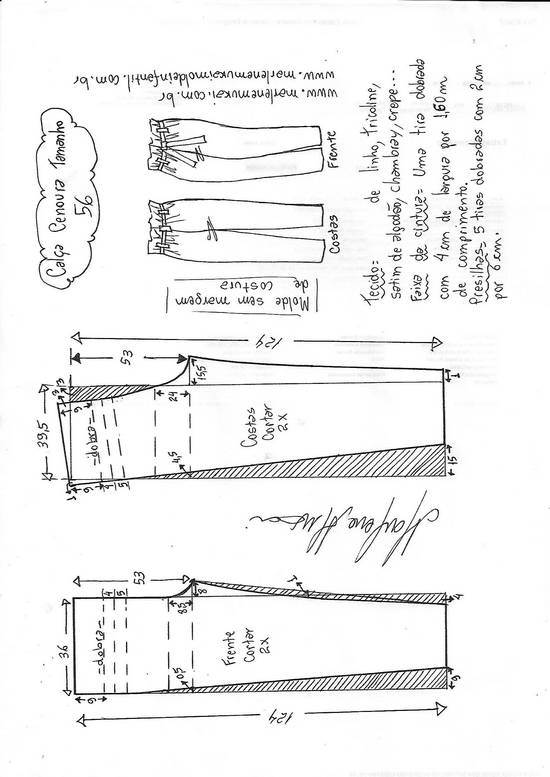 Calça Cenoura Tamanho
56
www.marlenemukai.com.br
www.marlenemukaimoldeinfantil.com.br
Frente
Costas
Molde sem margem
de costura
Tecido= de linho, tricoline,
satim de algodão, chambray, crepe...
Faixa de cintura= Uma tira dobrada
com 4 cm de largura por 1,60 m
de comprimento.
Presilhas= 5 tiras dobradas com 2 cm
por 6 cm.
124
53
3
3
15,5
24
1
39,5
=dobra=
9
4
5
Costas
Cortar
2x
4,5
15
1
9
4
5
Marlene Mukai
53
4
5
8,5
8
1
4
36
=dobra=
Frente
Cortar
2x
0,5
9
9
124